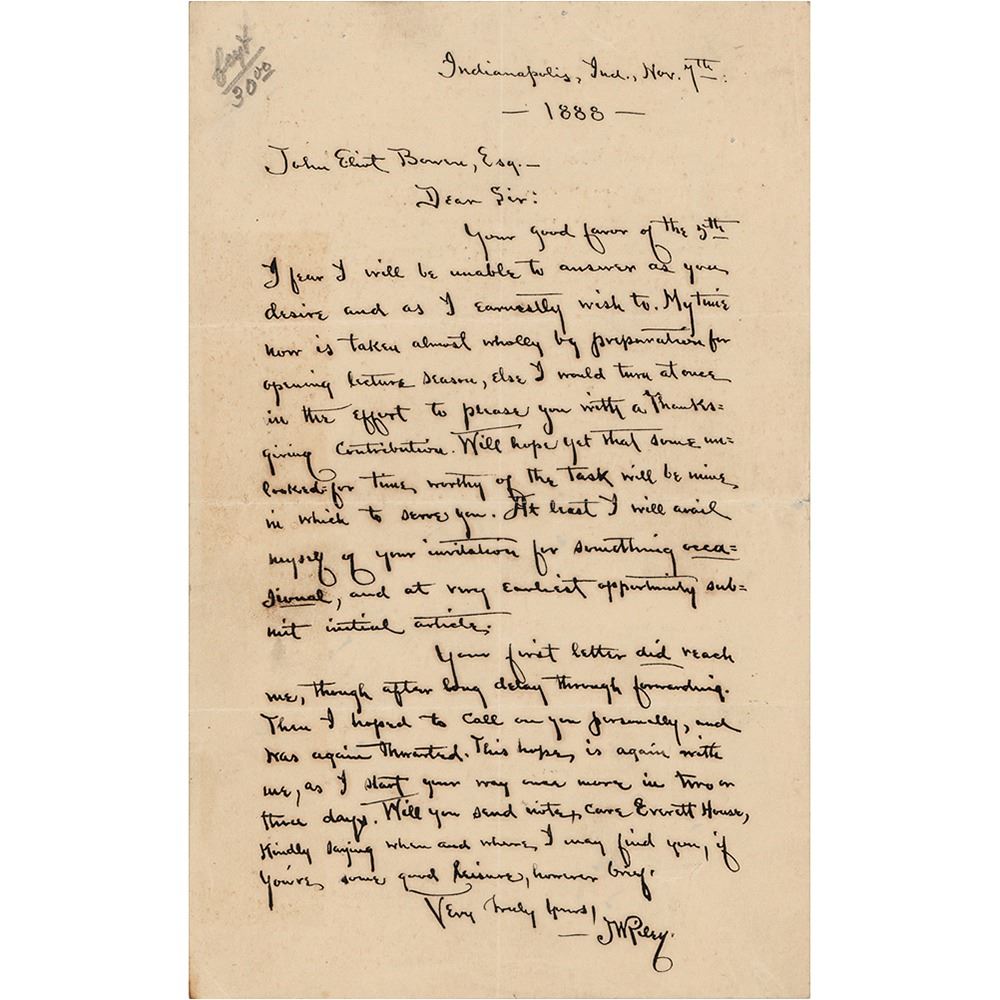 30.00
Indianapolis, Ind., Nov. 7th:
— 1888 —
John Eliot Bowen, Esq.—
Dear Sir:
Your good favor of the 5th
I fear I will be unable to answer as you
desire and as I earnestly wish to. My time
now is taken almost wholly by preparation for
opening lecture season, else I would turn at once
in the effort to please you with a Thanks=
giving Contribution. Will hope yet that some un=
looked-for time, worthy of the task will be mine,
in which to serve you. At least I will avail
myself of your invitation for something occa=
sional, and at very earliest opportunity sub=
mit initial article.
Your first letter did reach
me, though after long delay through forwarding.
Then I hoped to call on you personally, and
was again thwarted. This hope, is again with
me, as I start your way once more in two or
three days. Will you send note, care Everett House,
kindly saying when and where I may find you, if
you've some good leisure, however brief.
Very truly yours,
— JW Riley.